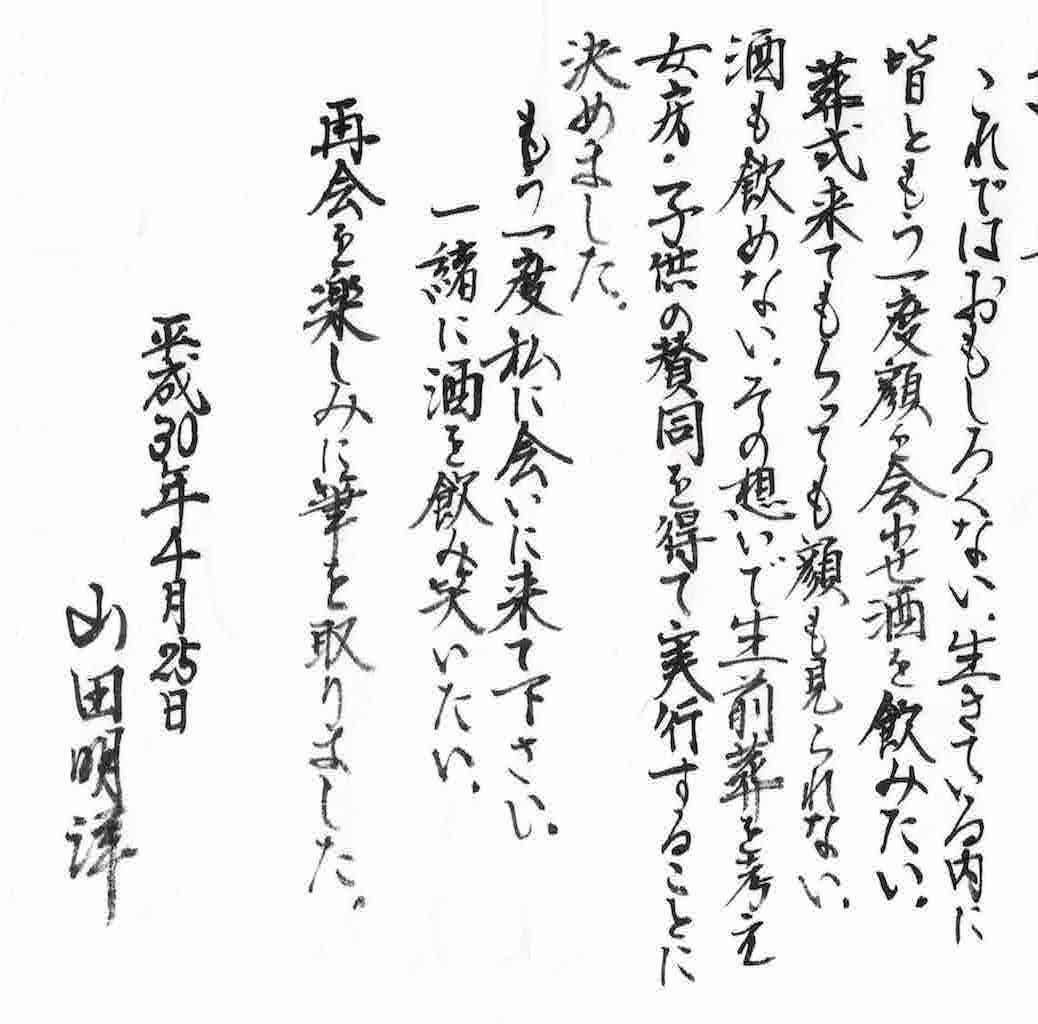 これではおもしろくない。生きている内に
皆ともう一度顔を会わせ酒を飲みたい。
葬式来てもらっても顔も見られない。
酒も飲めない。その想いで生前葬を考え
女房・子供の賛同を得て実行することに
決めました。
もう一度私に会いに来て下さい。
一緒に酒を飲み笑いたい。
再会を楽しみに筆を取りました。
平成30年4月25日
山田明洋